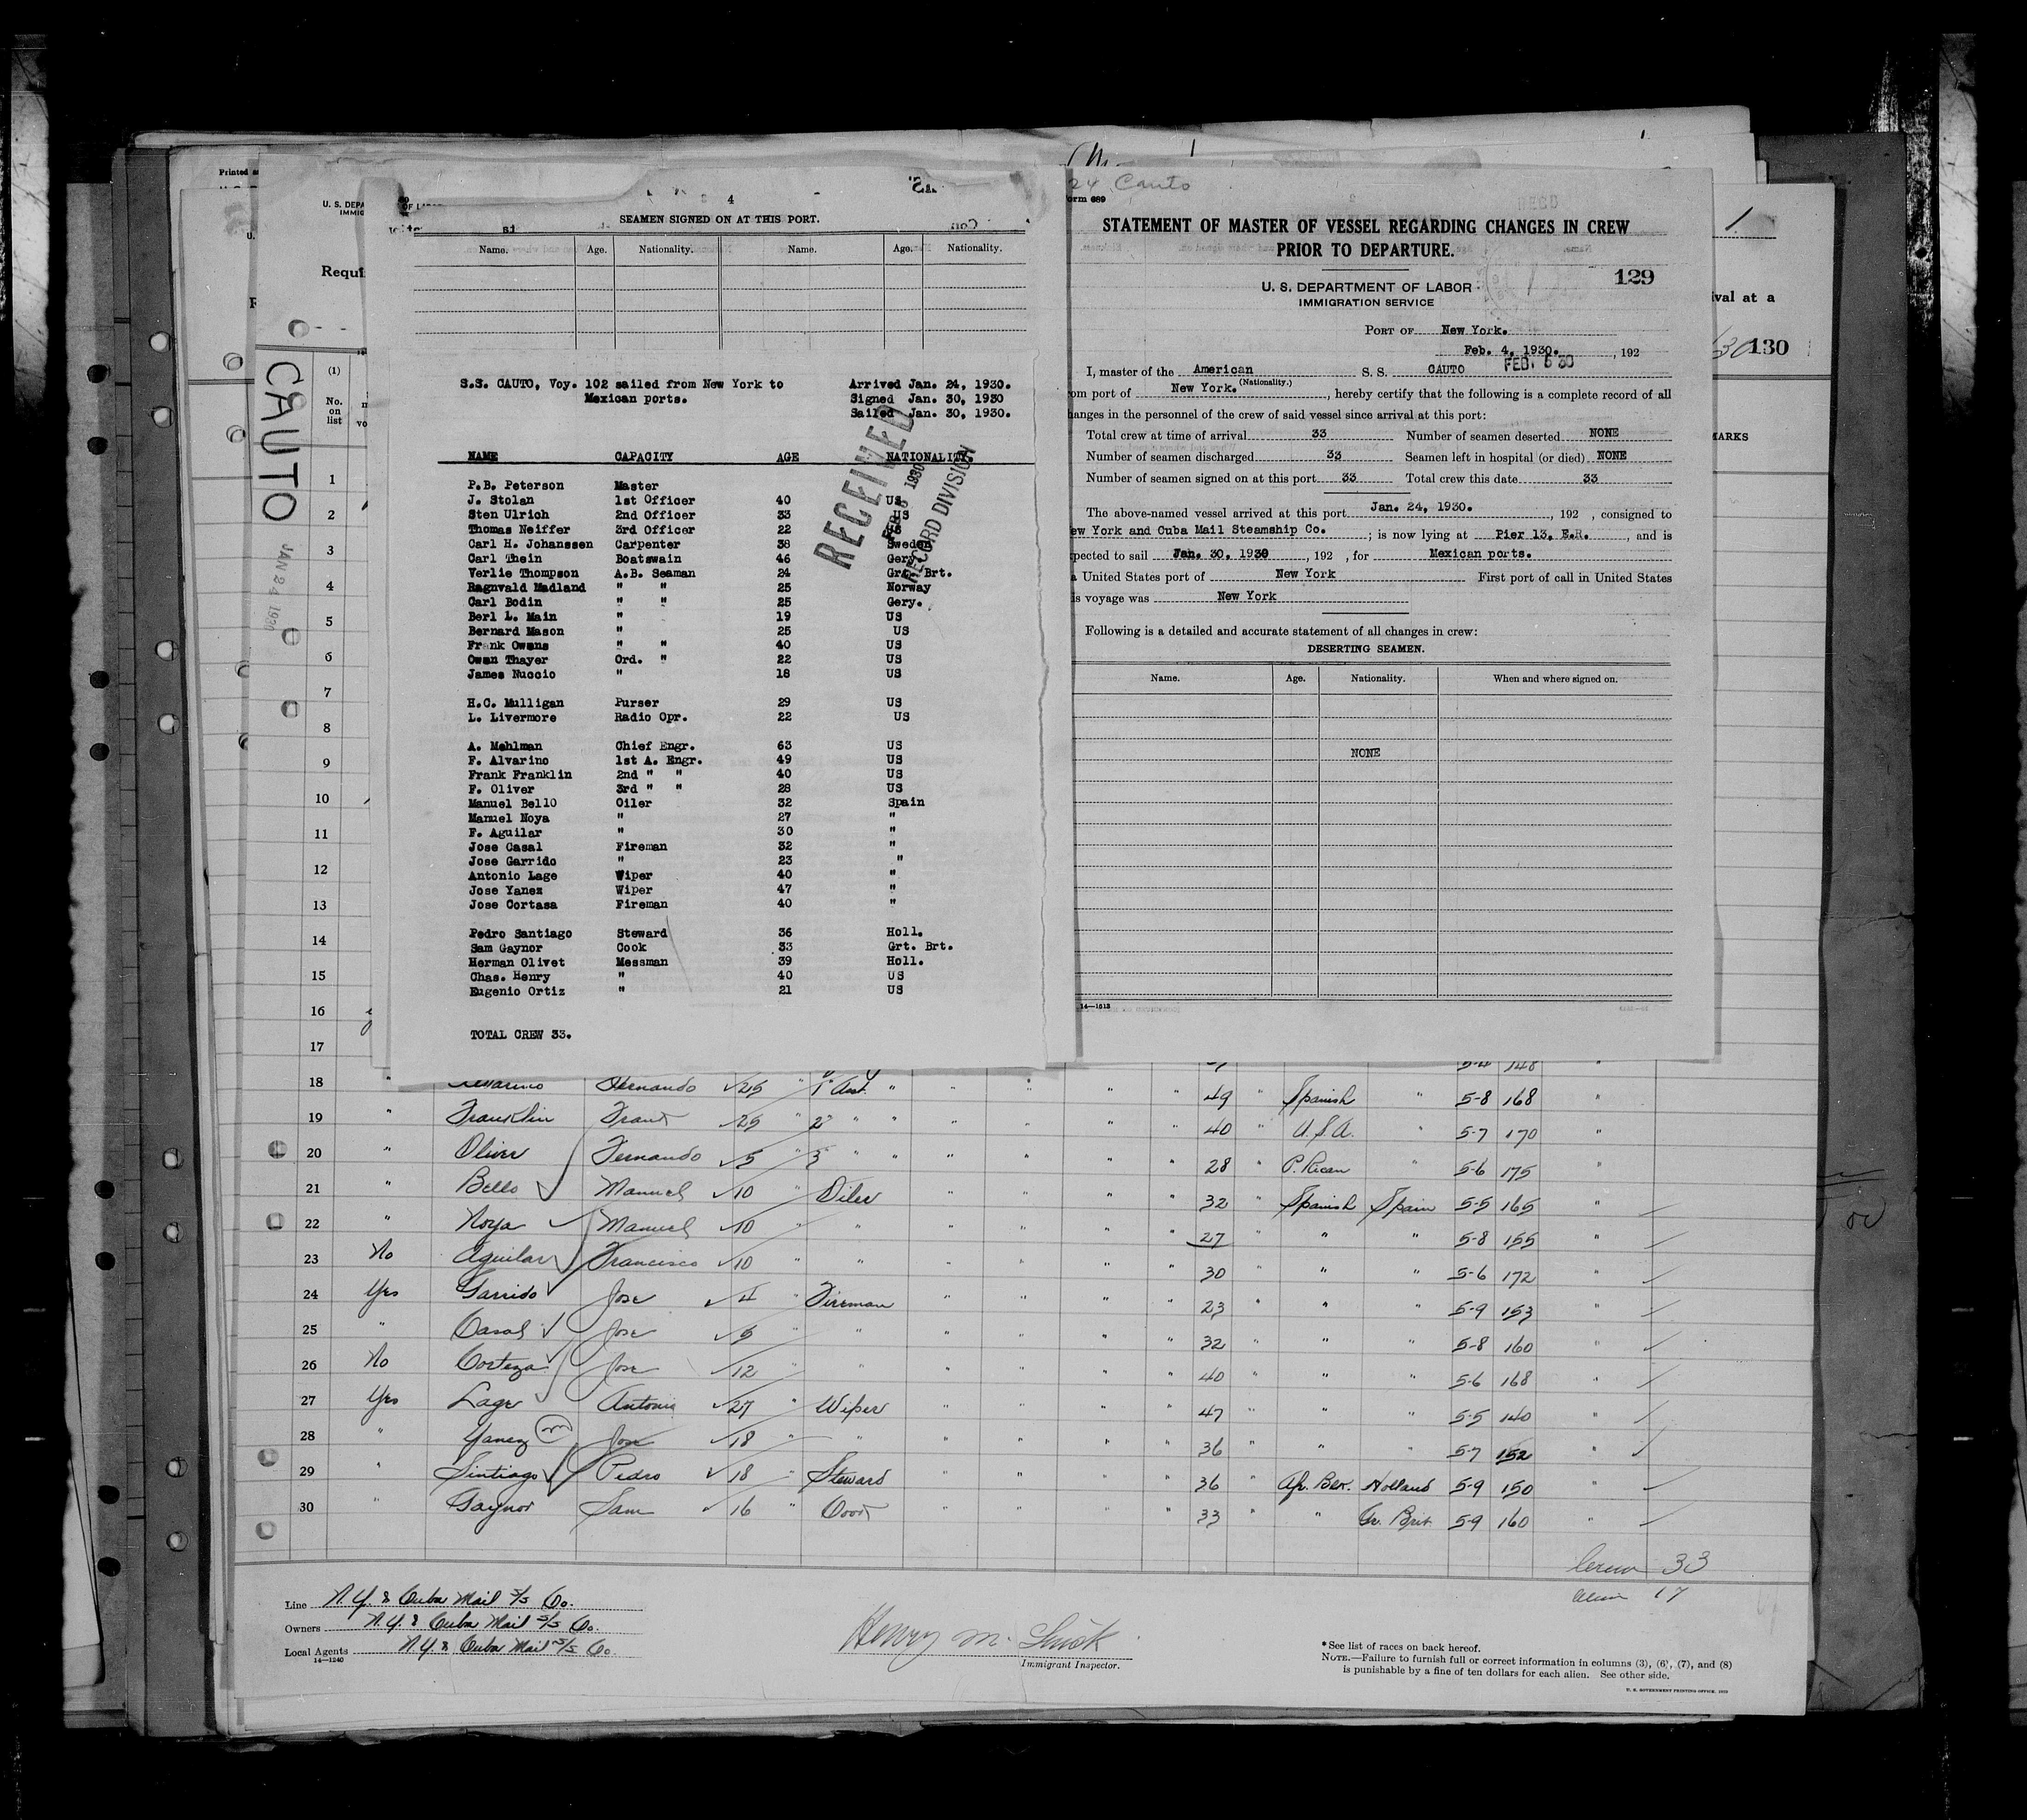 4
SEAMEN SIGNED ON AT THIS PORT.
Name. Age. Nationality. Name. Age. Nationality.
S.S. CAUTO, Voy. 102 sailed from New York to Arrived Jan. 24, 1930.
Mexican ports. Signed Jan. 30, 1930
Sailed Jan. 30, 1930.
RECEIVED
1930
RECORD DIVISION
NAME CAPACITY AGE NATIONALITY.
P.B. Peterson Master
J. Stolan 1st Officer 40 US
Sten Ulrich 2nd Officer 33 US
Thomas Neiffer 3rd Officer 22 US
Carl H. Johanssen Carpenter 38 Sweden
Carl Thein Boatswain 46 Gery.
Verlie Thompson A.B. Seaman 24 Grt. Brt.
Ragnvald Madland " " 25 Norway
Carl Bodin " " 25 Gery.
Berl L. Main " 19 US
Bernard Mason " 25 US
Frank Owens " " 40 US
Owen Thayer Ord. " 22 US
James Nuccio " 18 US
H.C. Mulligan Purser 29 US
L. Livermore Radio Opr. 22 US
A. Mehlman Chief Engr. 63 US
F. Alvarino 1st A. Engr. 49 US
Frank Franklin 2nd " " 40 US
F. Oliver 3rd " " 28 US
Manuel Bello Oiler 32 Spain
Manuel Noya " 27 "
F. Aguilar " 30 "
Jose Casal Fireman 32 "
Jose Garrido " 23 "
Antonio Lage Wiper 40 "
Jose Yanez Wiper 47 "
Jose Cortasa Fireman 40 "
Pedro Santiago Steward 36 Holl.
Sam Gaynor Cook 33 Grt. Brt.
Herman Olivet Messman 39 Holl.
Chas. Henry " 40 US
Eugenio Ortiz " 21 US
TOTAL CREW 33.
24 Cauto
orm 689
STATEMENT OF MASTER OF VESSEL REGARDING CHANGES IN CREW
PRIOR TO DEPARTURE.
U. S. DEPARTMENT OF LABOR
IMMIGRATION SERVICE
129
PORT OF New York.
Feb. 4, 1930. , 192
FEB. 5 30
I, master of the American S. S. CAUTO
(Nationality.)
om port of New York. , hereby certify that the following is a complete record of all
hanges in the personnel of the crew of said vessel since arrival at this port:
Total crew at time of arrival 33 Number of seamen deserted NONE
Number of seamen discharged 33 Seamen left in hospital (or died) NONE
Number of seamen signed on at this port 33 Total crew this date 33
The above-named vessel arrived at this port Jan. 24, 1930. , 192 , consigned to
ew York and Cuba Mail Steamship Co. ; is now lying at Pier 13, E.R. , and is
pected to sail Jan. 30, 1930 , 192 , for Mexican ports.
a United States port of New York First port of call in United States
is voyage was New York
Following is a detailed and accurate statement of all changes in crew:
DESERTING SEAMEN.
Name. Age. Nationality. When and where signed on.
NONE
14—1013
Printed
U. S. DEPA
IMMIG
Requi
(1)
No.
on
list
CAUTO
JAN 24 1930
1
val at a
130
MARKS
1
2
3
4
5
6
7
8
9
10
11
12
13
14
15
16
17
18 " Fernando 25 " 1 Asst. " " " " " 49 " Spanish " 5-8 168 "
19 " Franklin Frank 25 " 2 " " " " " " 40 " U.S.A. " 5-7 170 "
20 " Oliver Fernando 5 " 3 " " " " " " 28 " P. Rican " 5-6 175 "
21 " Bello Manuel 10 " Oiler " " " " 32 " Spanish Spain 5-5 165 "
22 " Noya Manuel 10 " " " " " " 27 " " " 5-8 155 "
23 No Aguilar Francisco 10 " " " " " " 30 " " " 5-6 172 "
24 Yes Garrido Jose 4 " Fireman " " " " 23 " " " 5-9 153 "
25 " Casal Jose 5 " " " " " " 32 " " " 5-8 160 "
26 No Corteza Jose 12 " " " " " " 40 " " " 5-6 168 "
27 Yes Lage Antonio 27 " Wiper " " " " 47 " " " 5-5 140 "
28 " Yanez Jose 18 " " " " " " 36 " " " 5-7 152 "
29 " Sintiago Pedro 18 " Steward " " " " 36 " Af. Blk. Holland 5-9 150 "
30 " Gaynor Sam 16 " Cook " " " " 33 " " Gr. Brit 5-9 160 "
Crew 33
Alien 17
Line N.Y. & Cuba Mail S/S Co.
Owners N.Y. & Cuba Mail S/S Co.
Local Agents N.Y. & Cuba Mail S/S Co
14—1240
Henry M.
Immigrant Inspector.
*See list of races on back hereof.
NOTE.—Failure to furnish full or correct information in columns (3), (6), (7), and (8)
is punishable by a fine of ten dollars for each alien. See other side.
U. S. GOVERNMENT PRINTING OFFICE, 1929